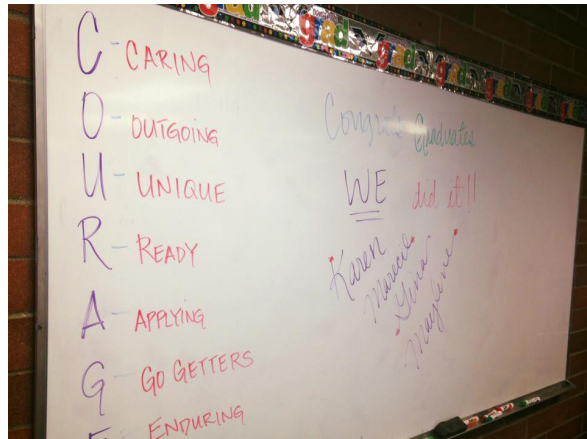 grad grad grad grad grad
C - CARING
O - OUTGOING
U - UNIQUE
R - READY
A - APPLYING
G - GO GETTERS
E - ENDURING
Congrats Graduates
WE did it!!
Karen
Marecie
Gina
Maylene